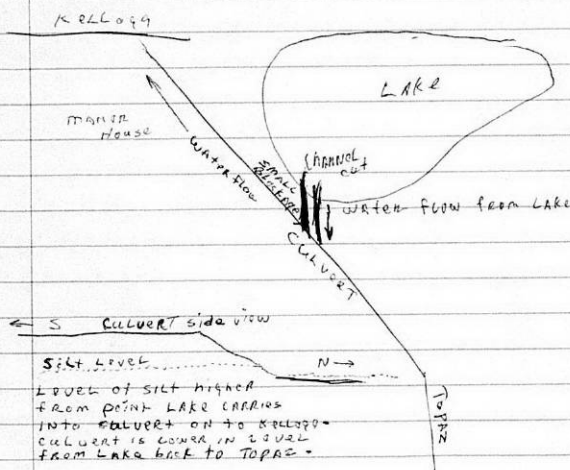 KELLOGG
LAKE
MANOR
HOUSE
WATER FLOW
SMALL
BLOCKAGE
CHANNEL
CUT
WATER FLOW FROM LAKE
CULVERT
← S CULVERT side view
SILT LEVEL
N →
LEVEL OF SILT higher
from point LAKE CARRIES
INTO CULVERT ON to KELLOGG.
CULVERT IS LOWER IN LEVEL
FROM LAKE back to TOPAZ.
TOPAZ